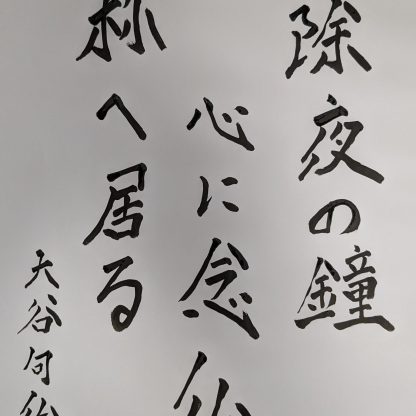 除夜の鐘
心に念仏
称へ居る
大谷句